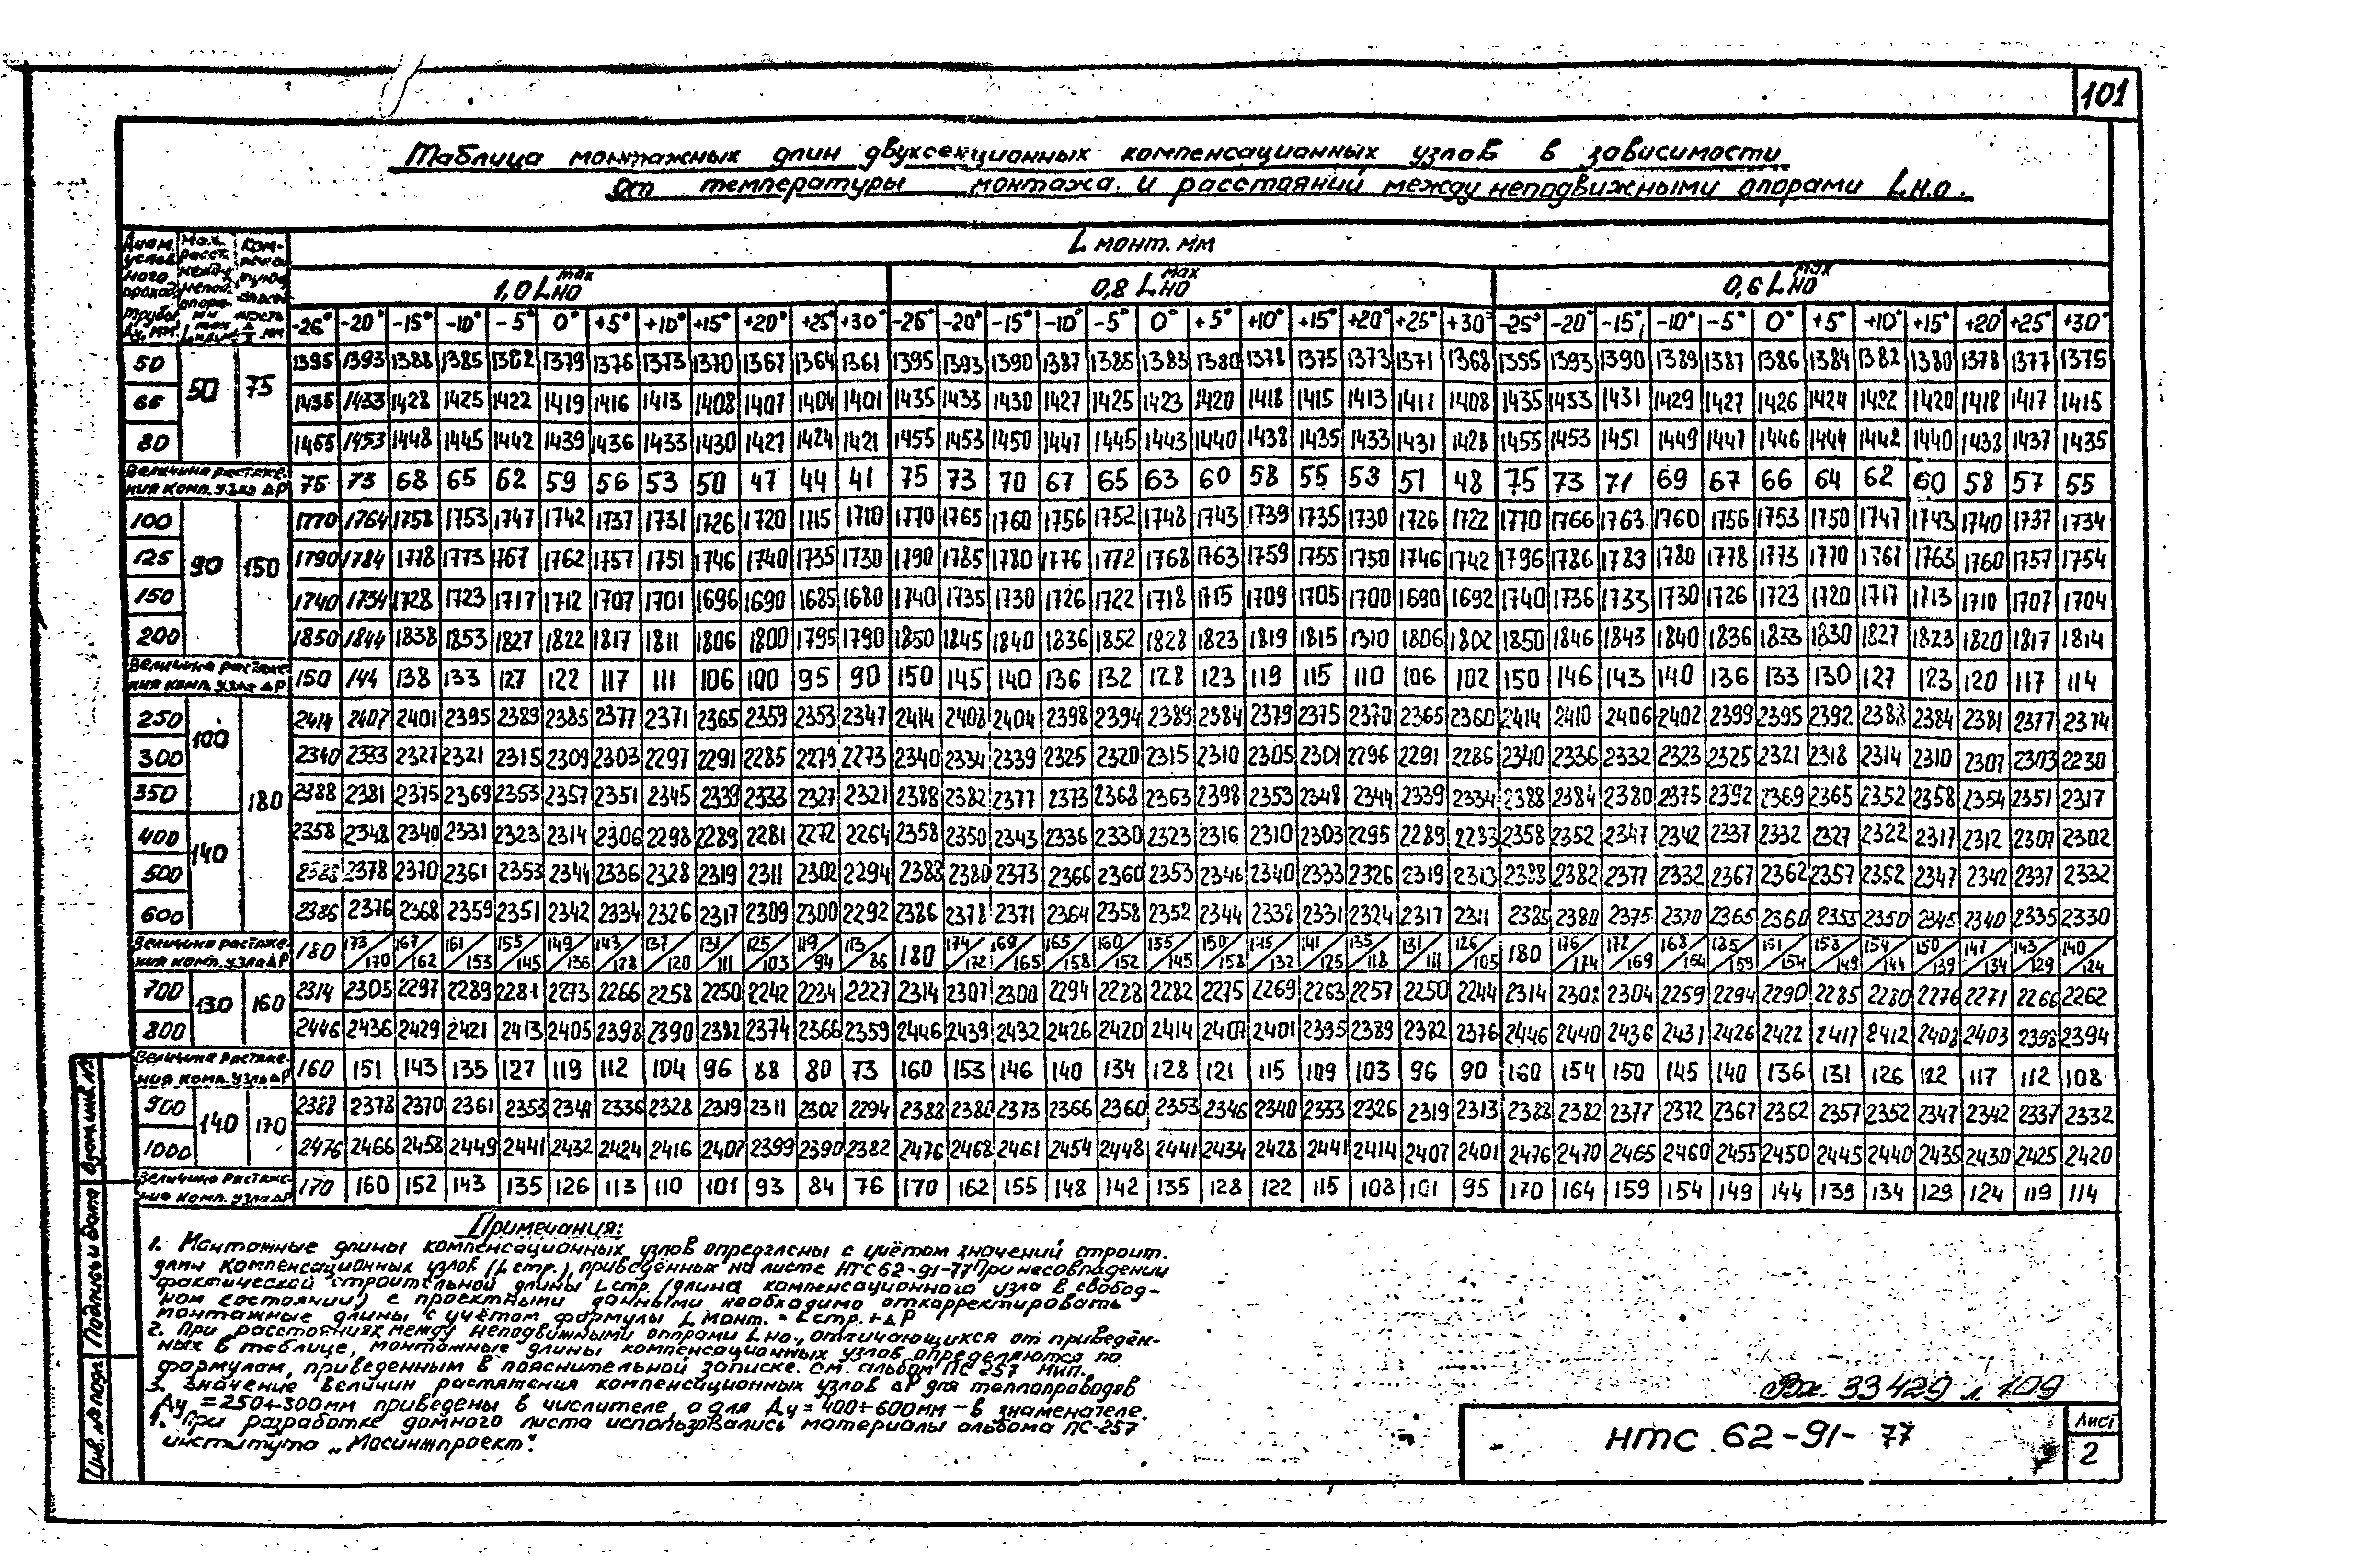 101
Таблица монтажных длин двухсекционных компенсационных узлов в зависимости
от температуры монтажа и расстояний между неподвижными опорами Lн.о.
L монт. мм
1,0 Lно max 0,8 Lно max 0,6 Lно max
-26° -20° -15° -10° -5° 0° +5° +10° +15° +20° +25° +30° -26° -20° -15° -10° -5° 0° +5° +10° +15° +20° +25° +30° -25° -20° -15° -10° -5° 0° +5° +10° +15° +20° +25° +30°
50 1395 1393 1388 1385 1382 1379 1376 1373 1370 1367 1364 1361 1395 1393 1390 1387 1385 1383 1380 1378 1375 1373 1371 1368 1355 1393 1390 1389 1387 1386 1384 1382 1380 1378 1377 1375
50 75
65 1435 1433 1428 1425 1422 1419 1416 1413 1408 1407 1404 1401 1435 1433 1430 1427 1425 1423 1420 1418 1415 1413 1411 1408 1435 1433 1431 1429 1427 1426 1424 1422 1420 1418 1417 1415
80 1455 1453 1448 1445 1442 1439 1436 1433 1430 1427 1424 1421 1455 1453 1450 1447 1445 1443 1440 1438 1435 1433 1431 1428 1455 1453 1451 1449 1447 1446 1444 1442 1440 1438 1437 1435
Величина растяже-
ния комп. узла ΔР 75 73 68 65 62 59 56 53 50 47 44 41 75 73 70 67 65 63 60 58 55 53 51 48 75 73 71 69 67 66 64 62 60 58 57 55
100 1770 1764 1758 1753 1747 1742 1737 1731 1726 1720 1715 1710 1770 1765 1760 1756 1752 1748 1743 1739 1735 1730 1726 1722 1770 1766 1763 1760 1756 1753 1750 1747 1743 1740 1737 1734
125 90 150 1790 1784 1778 1773 1767 1762 1757 1751 1746 1740 1735 1730 1790 1785 1780 1776 1772 1768 1763 1759 1755 1750 1746 1742 1796 1786 1783 1780 1778 1773 1770 1761 1763 1760 1757 1754
150 1740 1734 1728 1723 1717 1712 1707 1701 1696 1690 1685 1680 1740 1735 1730 1726 1722 1718 1715 1709 1705 1700 1690 1692 1740 1736 1733 1730 1726 1723 1720 1717 1713 1710 1707 1704
200 1850 1844 1838 1853 1827 1822 1817 1811 1806 1800 1795 1790 1850 1845 1840 1836 1852 1828 1823 1819 1815 1310 1806 1802 1850 1846 1843 1840 1836 1833 1830 1827 1823 1820 1817 1814
Величина растяже-
ния комп. узла ΔР 150 144 138 133 127 122 117 111 106 100 95 90 150 145 140 136 132 128 123 119 115 110 106 102 150 146 143 140 136 133 130 127 123 120 117 114
250 2414 2407 2401 2395 2389 2385 2377 2371 2365 2359 2353 2347 2414 2408 2404 2398 2394 2389 2384 2379 2375 2370 2365 2360 2414 2410 2406 2402 2399 2395 2392 2388 2384 2381 2377 2374
100
300 2340 2333 2327 2321 2315 2309 2303 2297 2291 2285 2279 2273 2340 2334 2339 2325 2320 2315 2310 2305 2301 2296 2291 2286 2340 2336 2332 2323 2325 2321 2318 2314 2310 2307 2303 2230
350 180 2388 2381 2375 2369 2353 2357 2351 2345 2339 2333 2327 2321 2388 2382 2377 2373 2368 2363 2398 2353 2348 2344 2339 2334 2388 2384 2380 2375 2392 2369 2365 2352 2358 2354 2351 2317
400 2358 2348 2340 2331 2323 2314 2306 2298 2289 2281 2272 2264 2358 2350 2343 2336 2330 2323 2316 2310 2303 2295 2289 2283 2358 2352 2347 2342 2337 2332 2327 2322 2317 2312 2307 2302
140
500 2388 2378 2370 2361 2353 2344 2336 2328 2319 2311 2302 2294 2388 2380 2373 2366 2360 2353 2346 2340 2333 2326 2319 2313 2388 2382 2377 2332 2367 2362 2357 2352 2347 2342 2337 2332
600 2386 2376 2368 2359 2351 2342 2334 2326 2317 2309 2300 2292 2386 2378 2371 2364 2358 2352 2344 2338 2331 2324 2317 2311 2385 2380 2375 2370 2365 2360 2355 2350 2345 2340 2335 2330
Величина растяже-
ния комп. узла ΔР 180 173/170 167/162 161/153 155/145 149/136 143/128 137/120 131/111 125/103 119/94 113/86 180 174/172 169/165 165/158 160/152 155/145 150/158 145/132 141/125 135/118 131/111 126/105 180 176/174 172/169 168/164 185/159 161/154 158/149 154/144 150/139 147/134 143/129 140/124
700 130 160 2314 2305 2297 2289 2281 2273 2266 2258 2250 2242 2234 2227 2314 2307 2300 2294 2288 2282 2275 2269 2263 2257 2250 2244 2314 2308 2304 2259 2294 2290 2285 2280 2276 2271 2266 2262
800 2446 2436 2429 2421 2413 2405 2398 2390 2382 2374 2366 2359 2446 2439 2432 2426 2420 2414 2407 2401 2395 2389 2382 2376 2446 2440 2436 2431 2426 2422 2417 2412 2408 2403 2398 2394
Величина растяже-
ния комп. узла ΔР 160 151 143 135 127 119 112 104 96 88 80 73 160 153 146 140 134 128 121 115 109 103 96 90 160 154 150 145 140 136 131 126 122 117 112 108
900 2388 2378 2370 2361 2353 2344 2336 2328 2319 2311 2302 2294 2388 2380 2373 2366 2360 2353 2346 2340 2333 2326 2319 2313 2388 2382 2377 2372 2367 2362 2357 2352 2347 2342 2337 2332
140 170
1000 2476 2466 2458 2449 2441 2432 2424 2416 2407 2399 2390 2382 2476 2468 2461 2454 2448 2441 2434 2428 2441 2414 2407 2401 2476 2470 2465 2460 2455 2450 2445 2440 2435 2430 2425 2420
Величина растяже-
ния комп. узла ΔР 170 160 152 143 135 126 113 110 101 93 84 76 170 162 155 148 142 135 128 122 115 108 101 95 170 164 159 154 149 144 139 134 129 124 119 114
Примечания:
1. Монтажные длины компенсационных узлов определены с учётом значений строит.
длин компенсационных узлов (L стр.), приведённых на листе НТС 62-91-77 При несовпадении
фактической строительной длины L стр. (длина компенсационного узла в свобод-
ном состоянии) с проектными данными необходимо откорректировать
монтажные длины с учётом формулы L монт. = L стр. + ΔР
2. При расстояниях между неподвижными опорами L но., отличающихся от приведён-
ных в таблице, монтажные длины компенсационных узлов определяются по
формулам, приведенным в пояснительной записке. см. альбом ПС 257 МИП.
3. Значение величин растяжения компенсационных узлов ΔР для теплопроводов
Ду = 250÷300мм приведены в числителе, а для Ду = 400÷600мм – в знаменателе.
4. При разработке данного листа использовались материалы альбома ПС-257
института „Мосинжпроект".
Вх. 33429 л 109
НТС 62-91-77
Лист
2
Инв. № подл. Подпись и дата Взам. инв. №